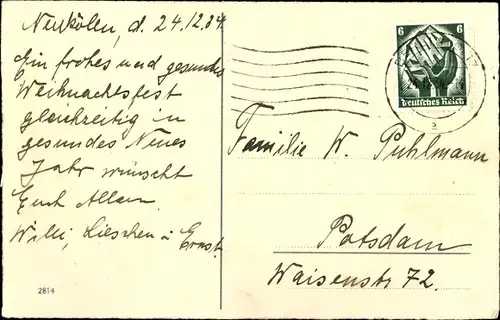 Neukölln, d. 24.12.34.
Ein frohes und gesundes
Weihnachtsfest
gleichzeitig in
gesundes Neues
Jahr wünscht
Euch Allen
Willi, Lieschen u Ernst.
2814
6 6
Deutsches Reich
Familie W. Puhlmann
Potsdam
Waisenstr 72.